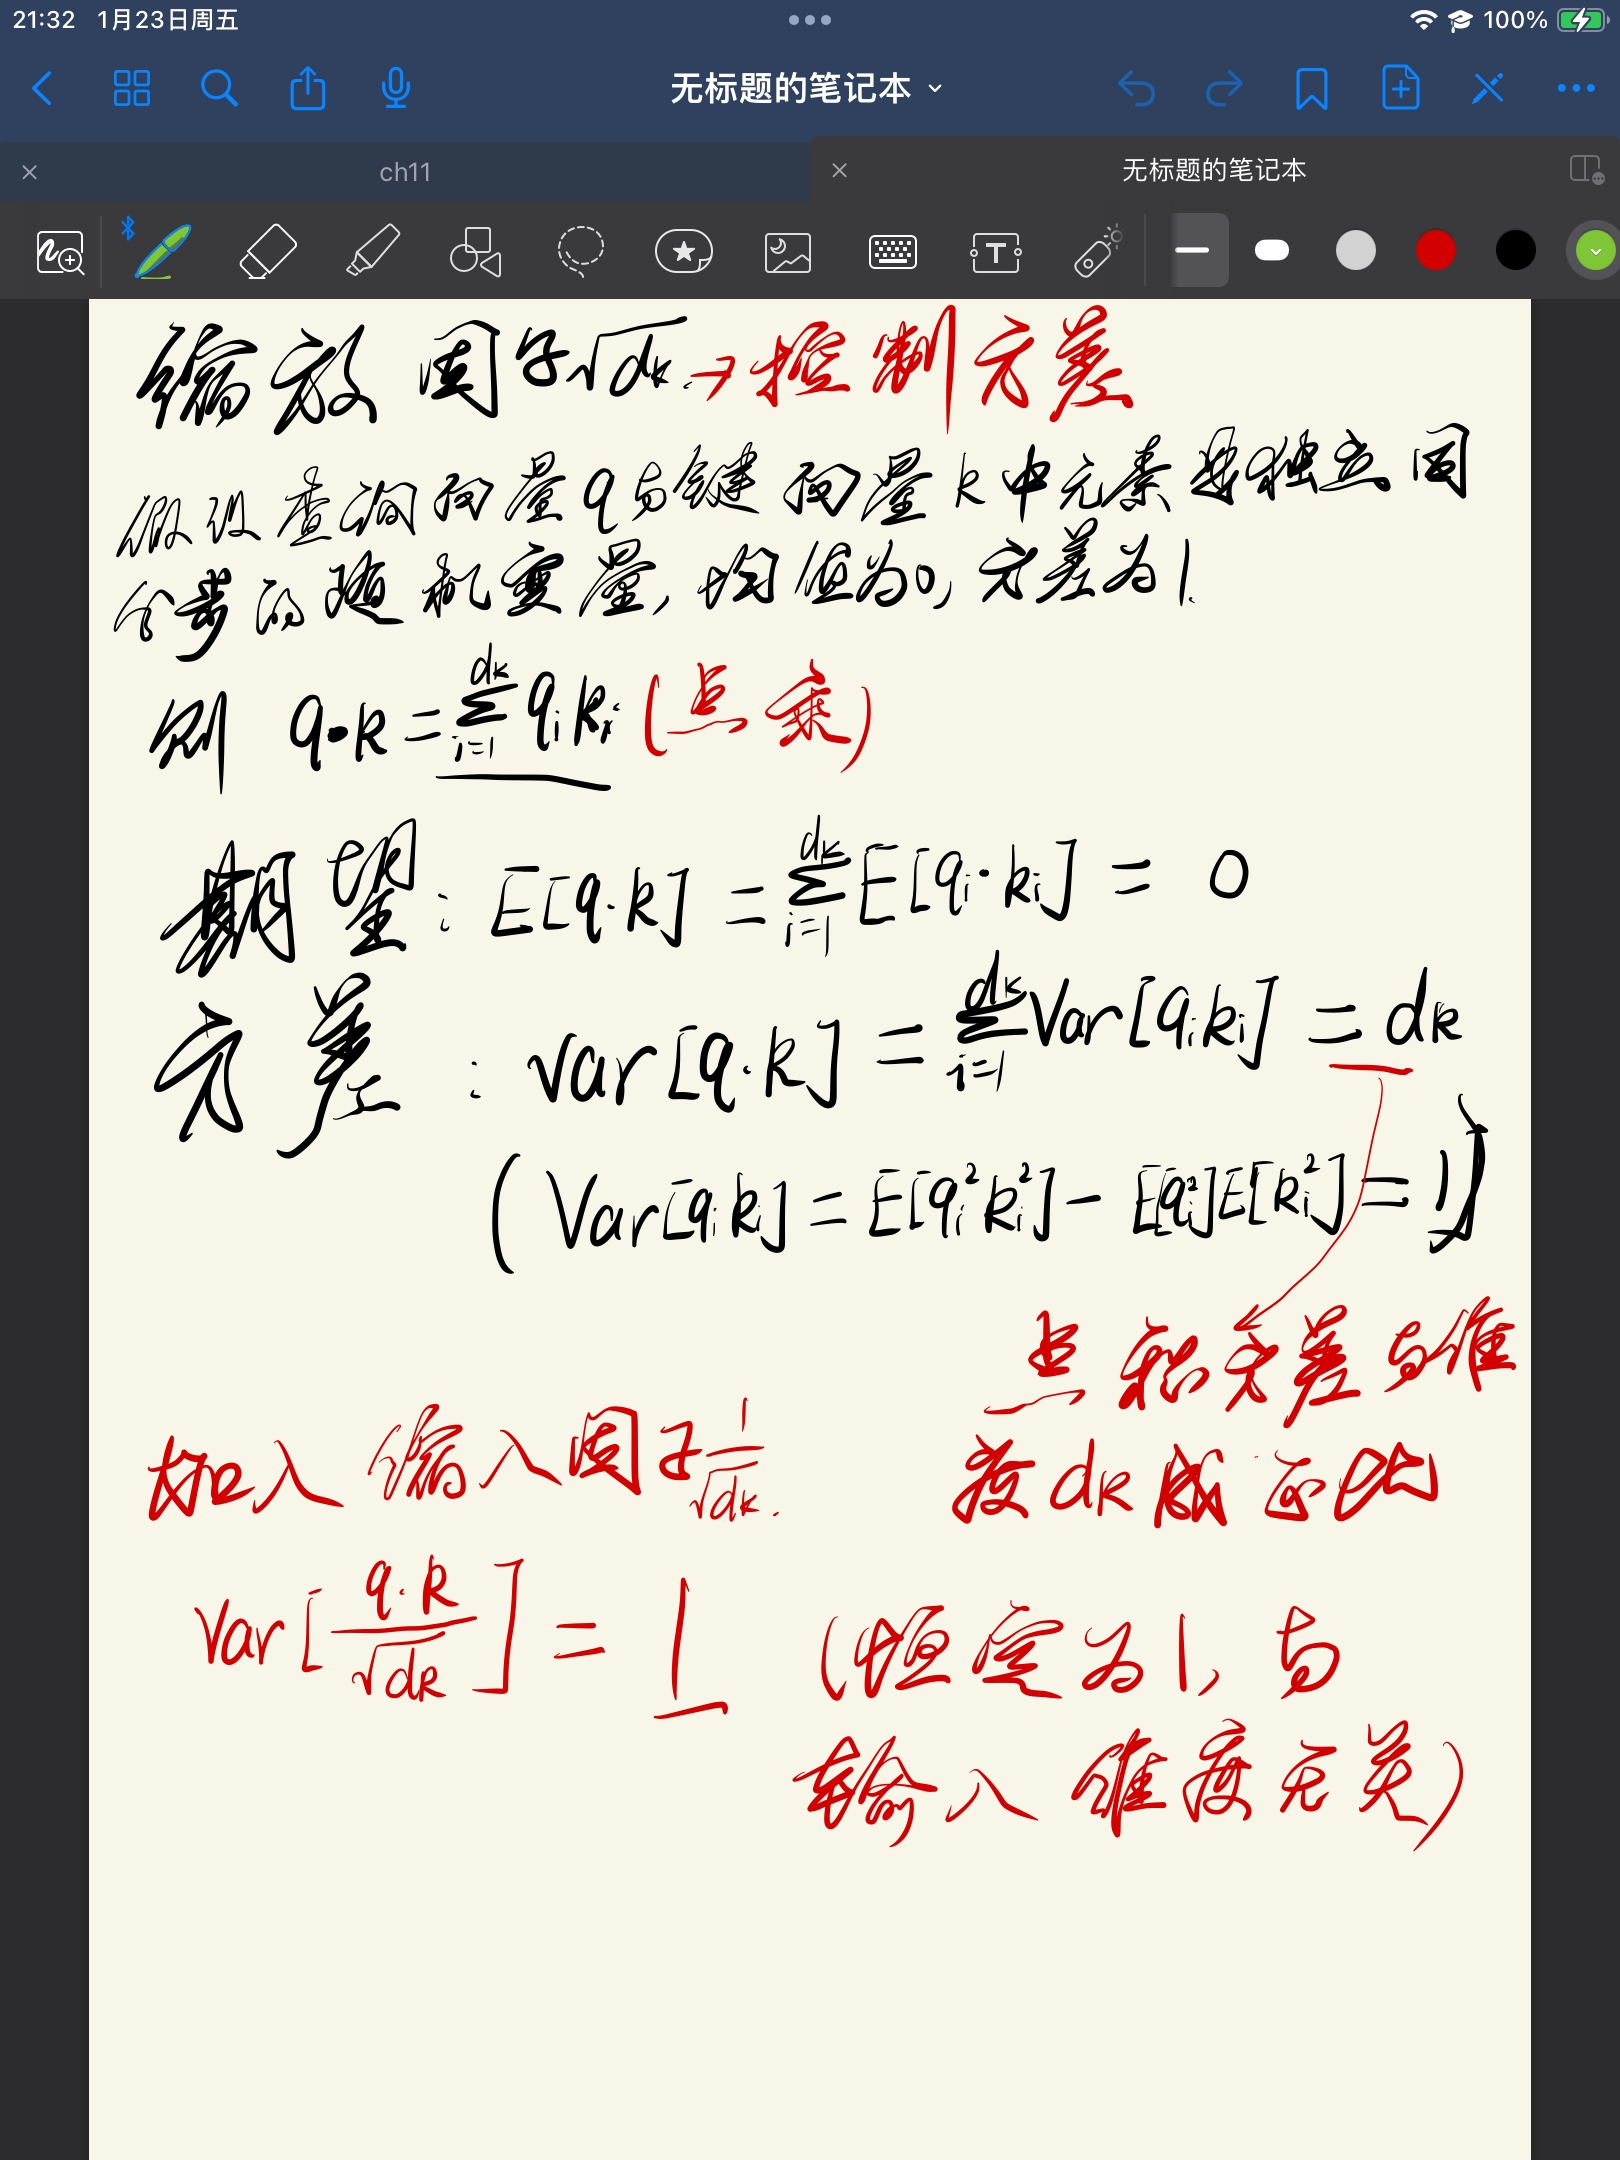 21:32 1月23日周五 100%
无标题的笔记本
ch11
无标题的笔记本
缩放因子√dk → 控制方差
假设查询向量q与键向量k中元素是独立同
分步的随机变量, 均值为0, 方差为1.
则 q·k = ∑_{i=1}^{dk} qi ki (点乘)
期望: E[q·k] = ∑_{i=1}^{dk} E[qi·ki] = 0
方差: Var[q·k] = ∑_{i=1}^{dk} Var[qi ki] = dk
(Var[qi ki] = E[qi² ki²] - E[qi²]E[ki²] = 1)
点积方差与维
度dk成正比
加入缩入因子 1/√dk.
Var[q·k/√dk] = 1 (恒定为1, 与
输入维度无关)